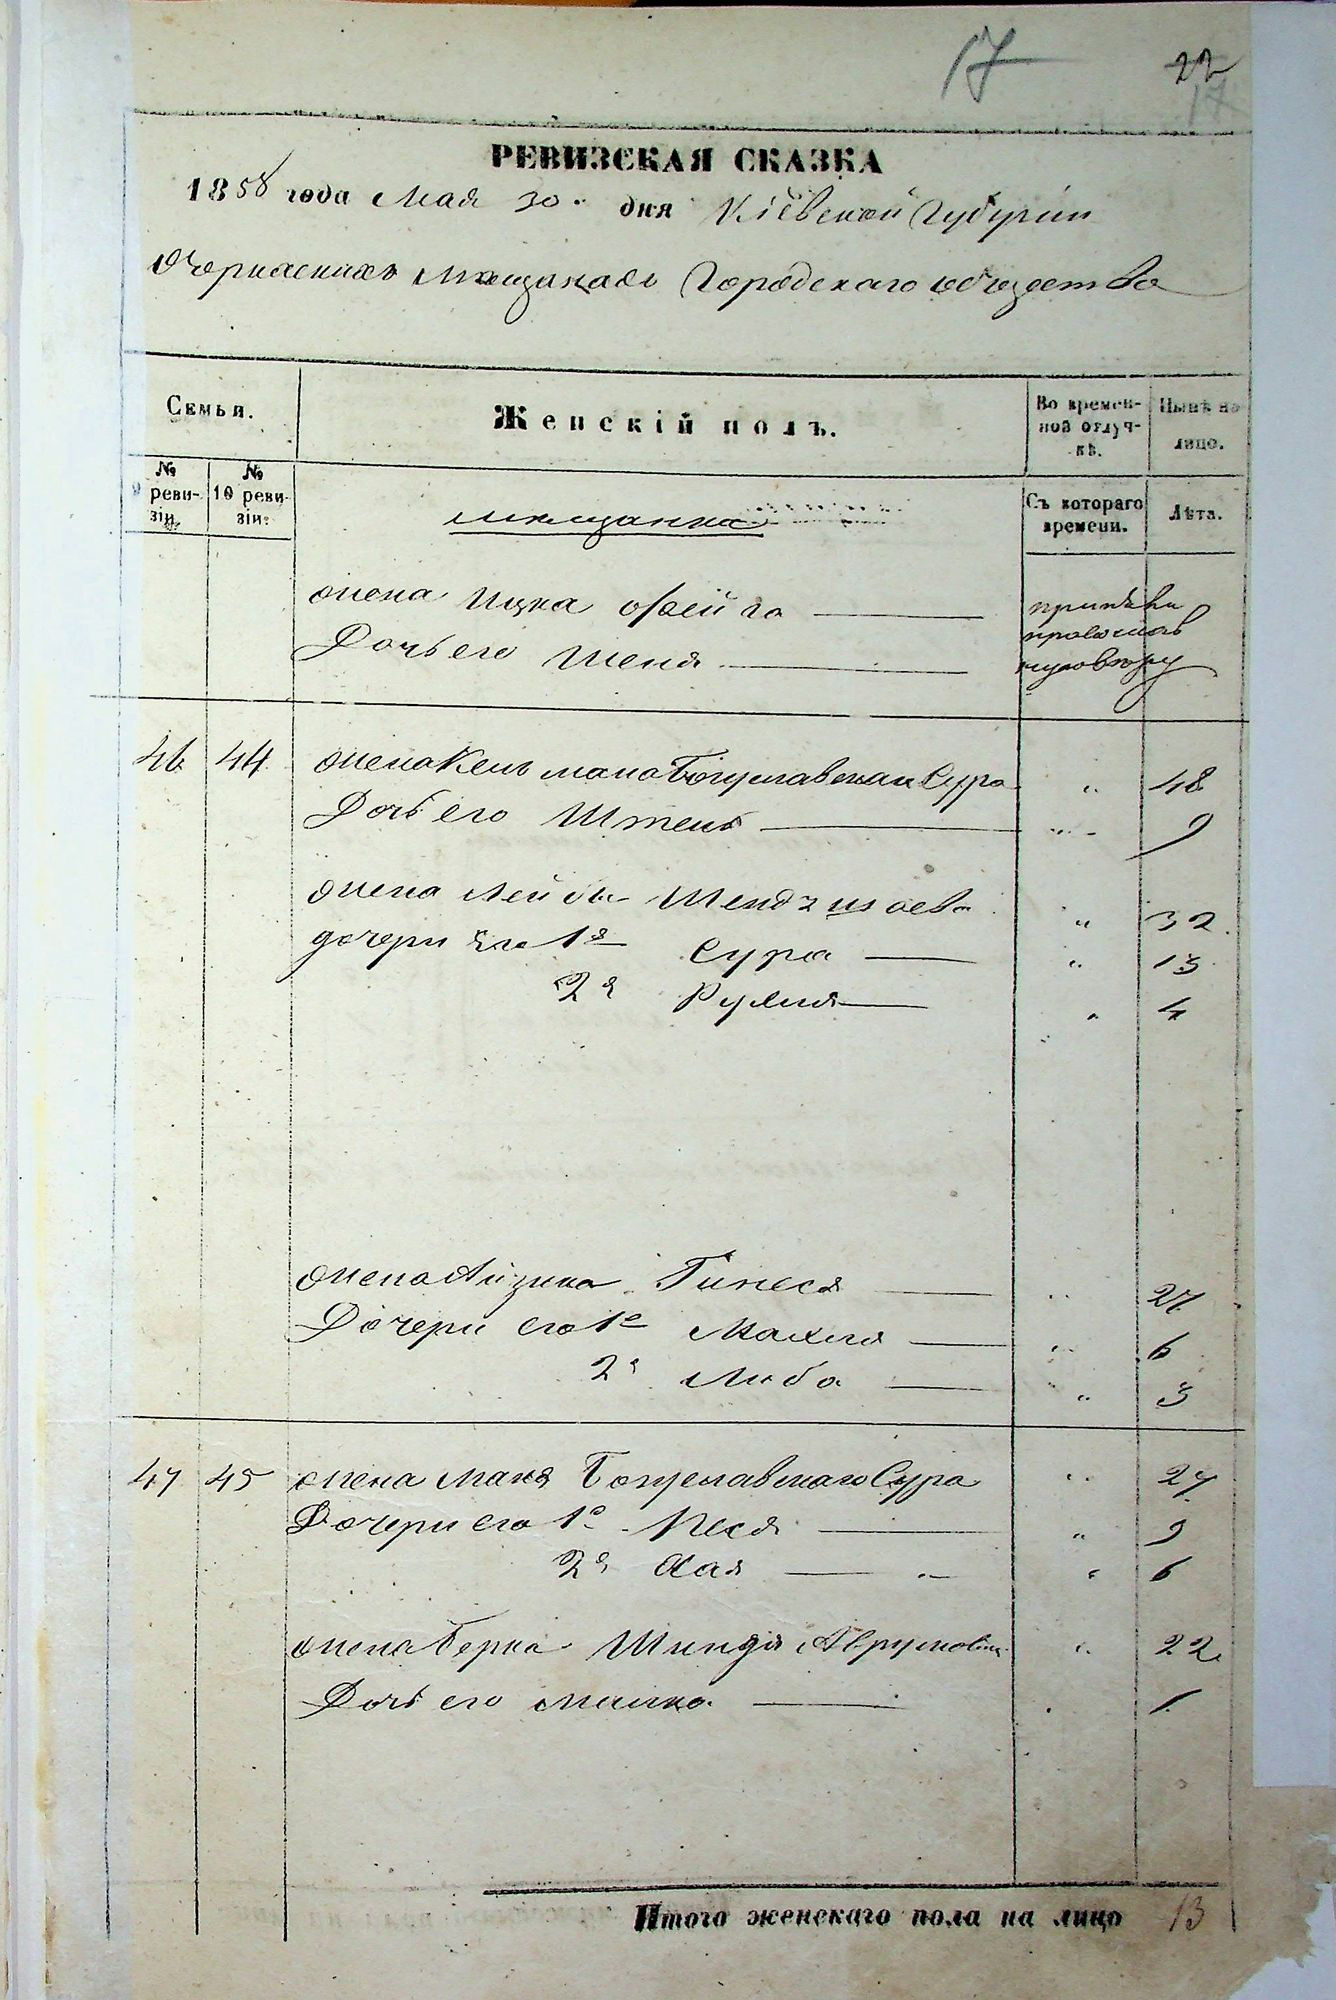 17 22
17
РЕВИЗСКАЯ СКАЗКА
1858 года Мая 30 дня Кіевской Губерніи
Очеркаскихъ Мещанахъ Городскаго общества
Семья.
Женскій полъ.
Во времен-
ной отлуч-
кѣ.
Нынѣ на
лицо.
№
9 реви-
зіи.
№
10 реви-
зіи.
мещанка
Съ котораго
времени.
Лѣта.
жена Ицка Фейга
Дочь его Шеня
приняви
православ
ную вѣру
46 44 жена Кельмана Богуславская Сура " 48
Дочь его Штень " 9
жена Лейбы Шендзисева " 32
дочери его 1я Сура " 13
2я Рухля " 4
жена Айзика Гинеся " 27
Дочери его 1я Махля " 6
2я Либа " 3
47 45 жена Маня Богуславскаго Сура " 27
Дочери его 1я Песя " 9
2я Хая " 6
жена Берка Шиндя Аврумова " 22
Дочь его Малка 1
Итого женскаго пола на лицо 13